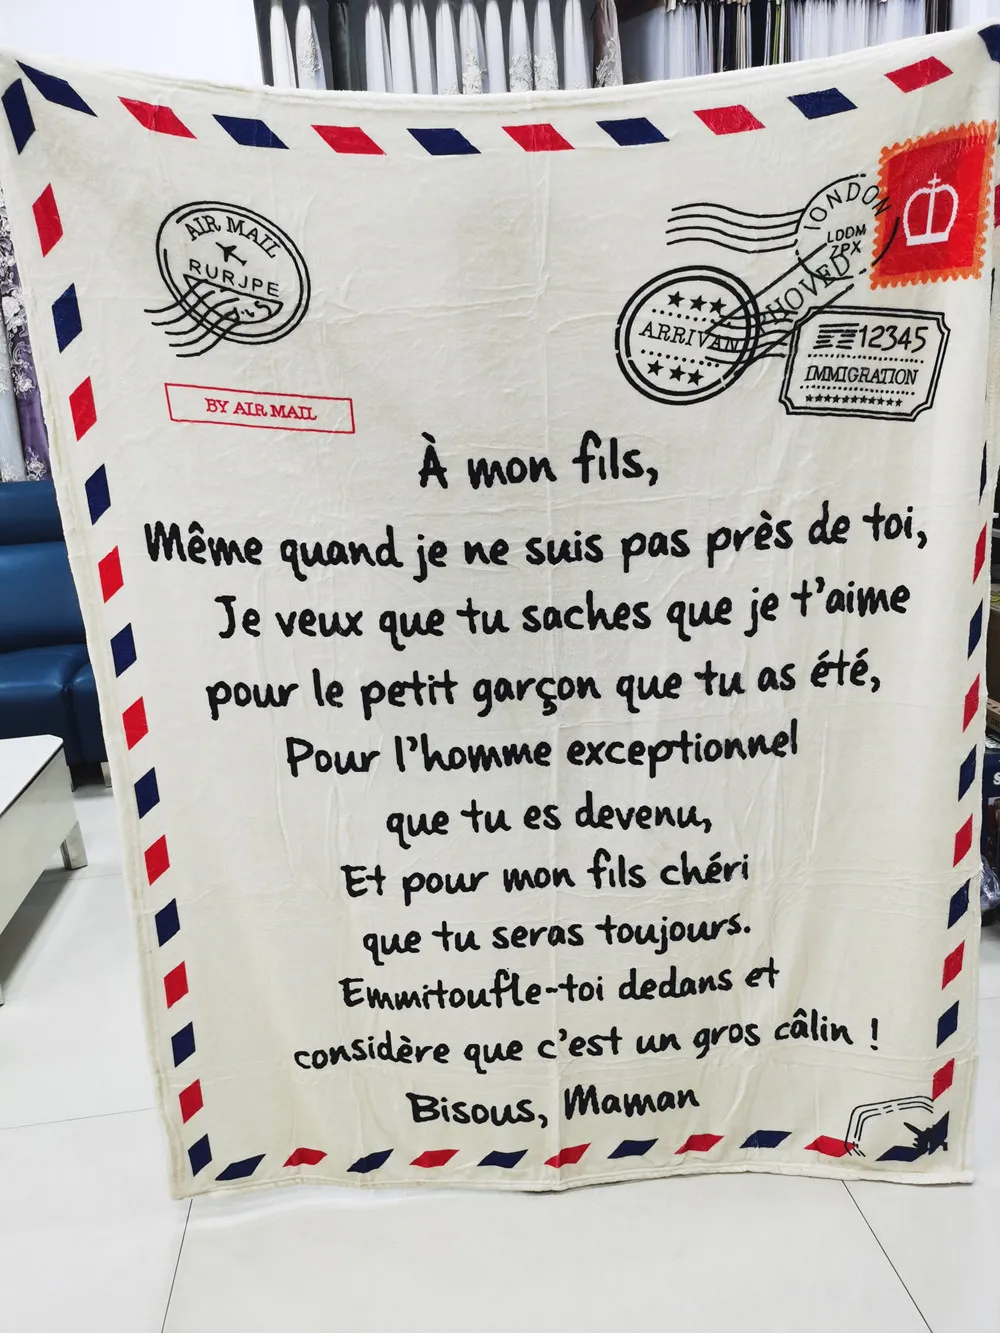 AIR MAIL
RURJPE
LONDON
LDDM
ZPX
HOVED
ARRIVAN
12345
IMMIGRATION
BY AIR MAIL
À mon fils,
Même quand je ne suis pas près de toi,
Je veux que tu saches que je t'aime
pour le petit garçon que tu as été,
Pour l'homme exceptionnel
que tu es devenu,
Et pour mon fils chéri
que tu seras toujours.
Emmitoufle-toi dedans et
considère que c'est un gros câlin !
Bisous, Maman